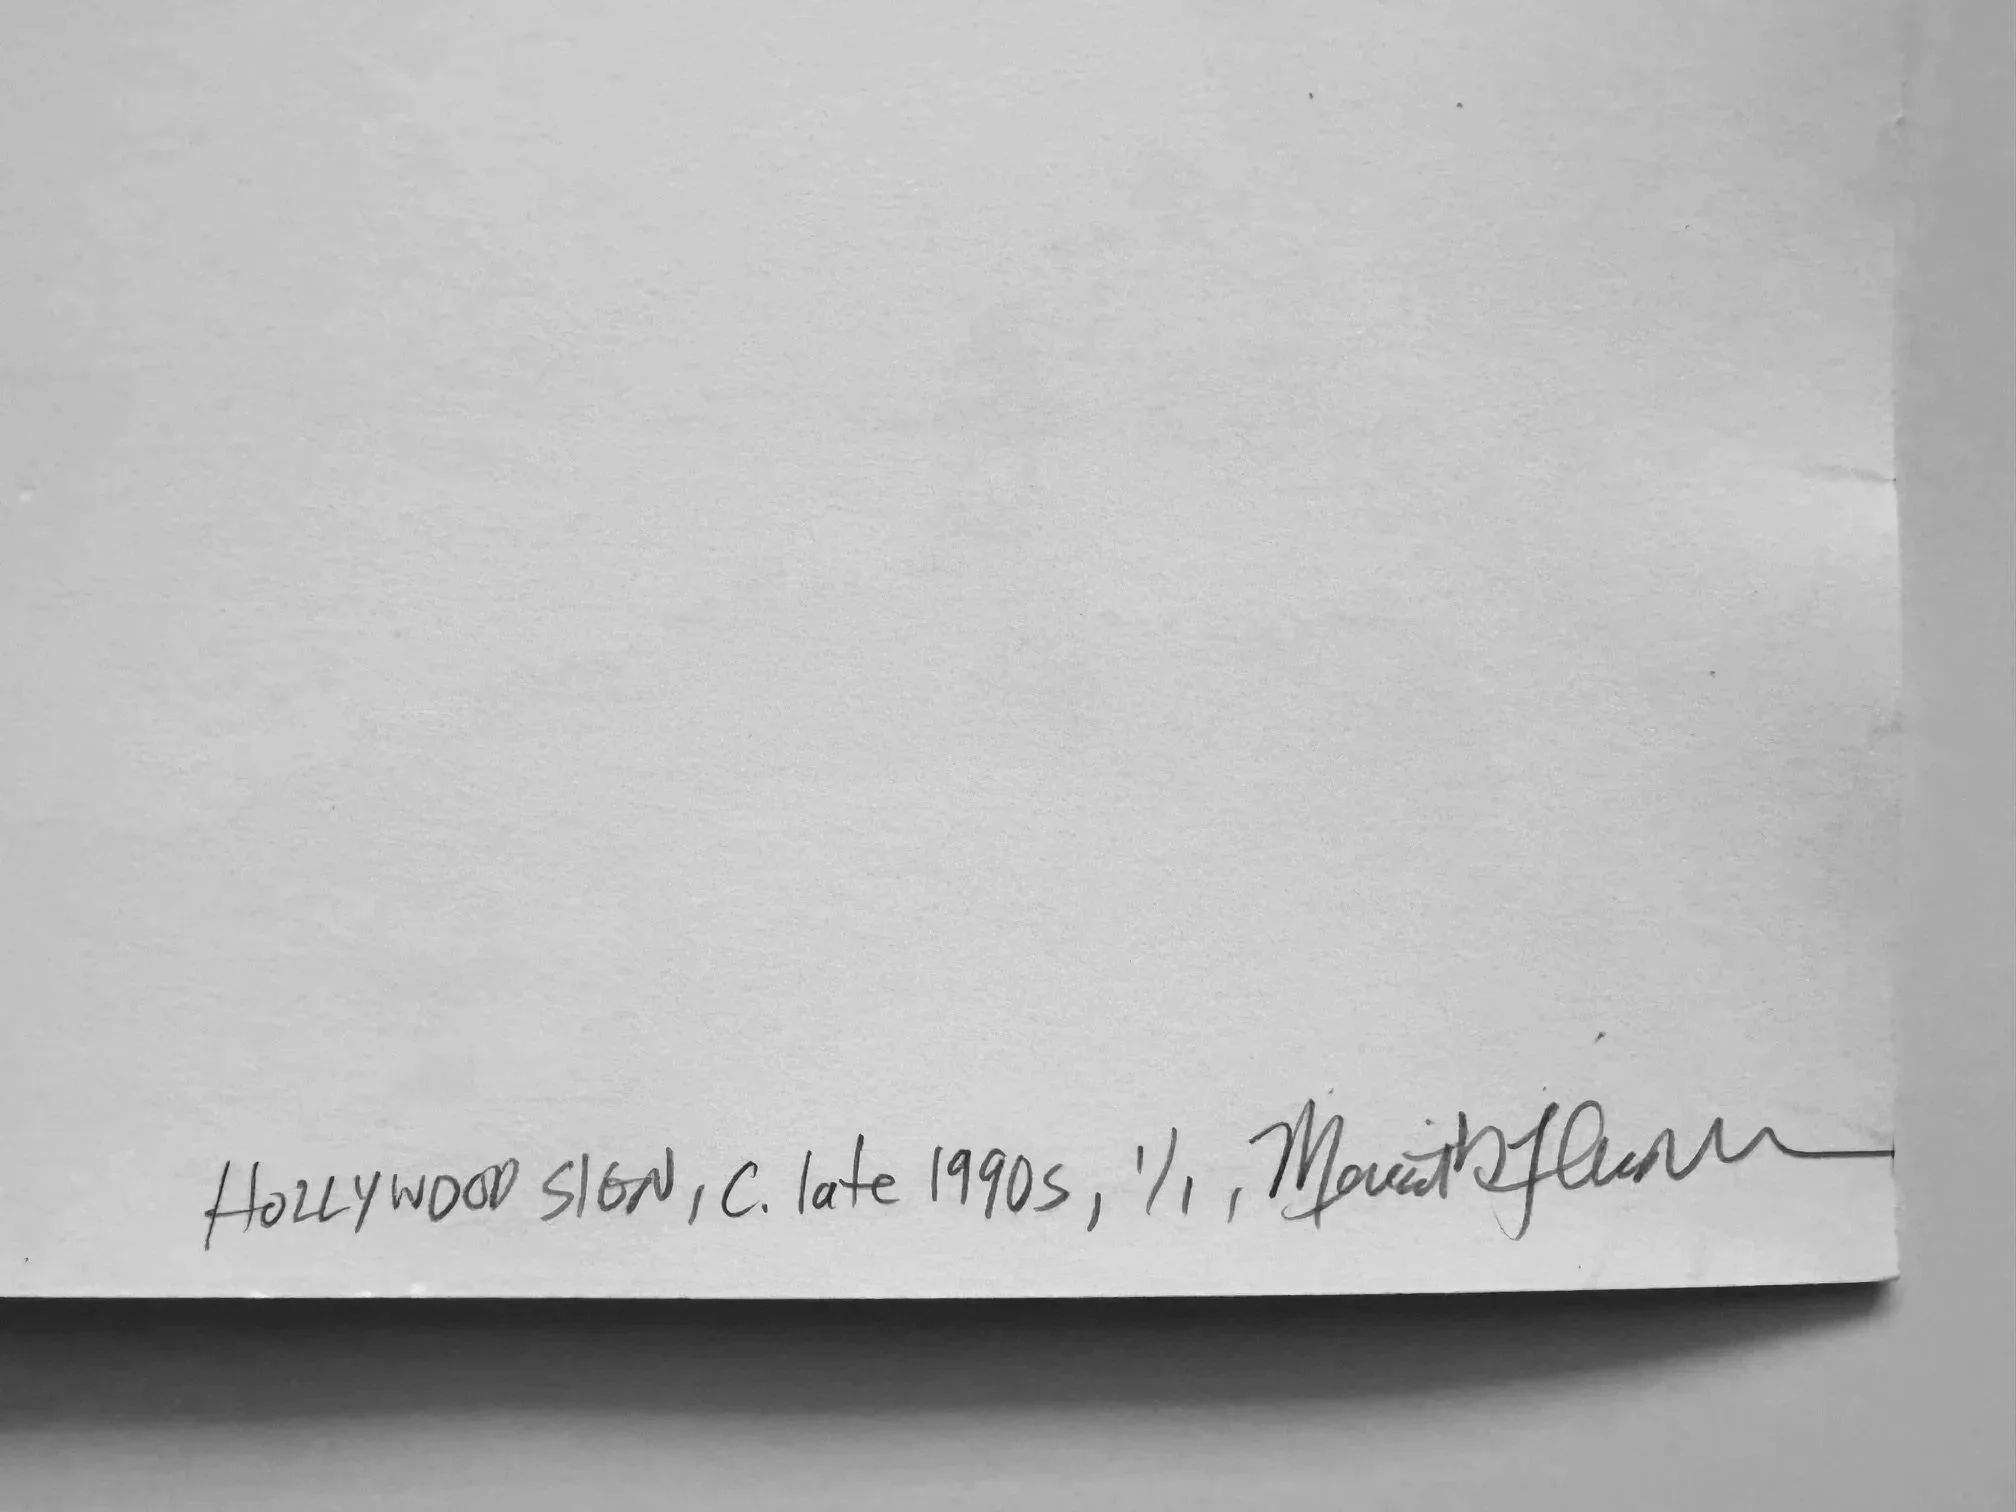 HOLLYWOOD SIGN, c. late 1990s, 1/1,